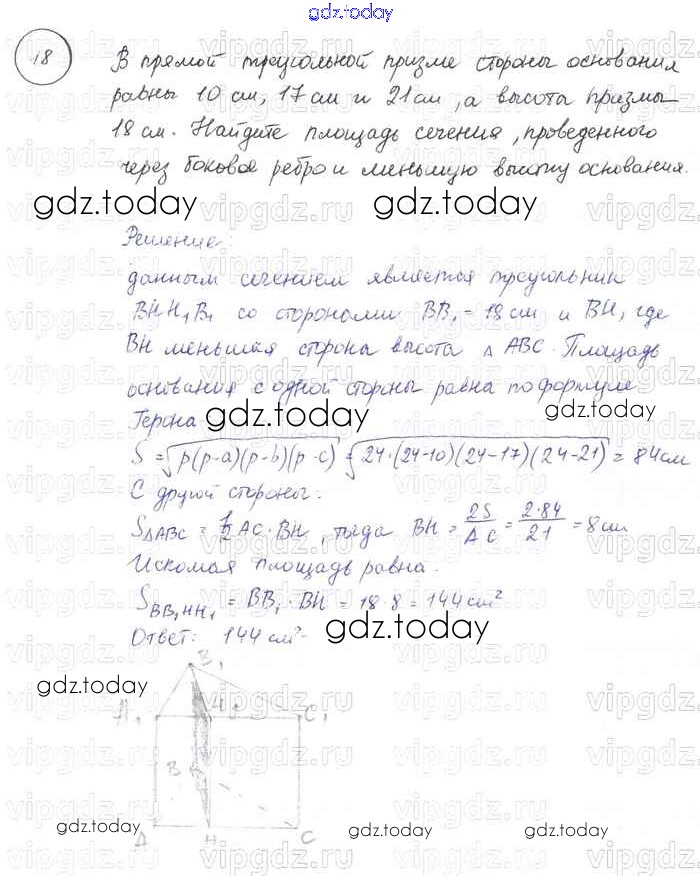 gdz.today
18 В прямой треугольной призме стороны основания
равны 10 см, 17 см и 21 см, а высота призмы
18 см. Найдите площадь сечения, проведенного
через боковое ребро и меньшую высоту основания.
gdz.today gdz.today
Решение:
данным сечением является треугольник
BHH₁B₁ со сторонами BB₁ = 18 см и BH, где
BH меньшая стороны высота △ ABC. Площадь
основания с одной стороны равна по формуле
Герона gdz.today gdz.today
S = √p(p-a)(p-b)(p-c) = √24·(24-10)(24-17)(24-21) = 84 см
С другой стороны:
S△ABC = ½ AC · BH, тогда BH = 2S/AC = 2·84/21 = 8 см
Искомая площадь равна.
S BB₁HH₁ = BB₁ · BH = 18·8 = 144 см²
Ответ: 144 см² gdz.today
B₁
gdz.today
A₁ H C₁
B
gdz.today gdz.today gdz.today
A H C